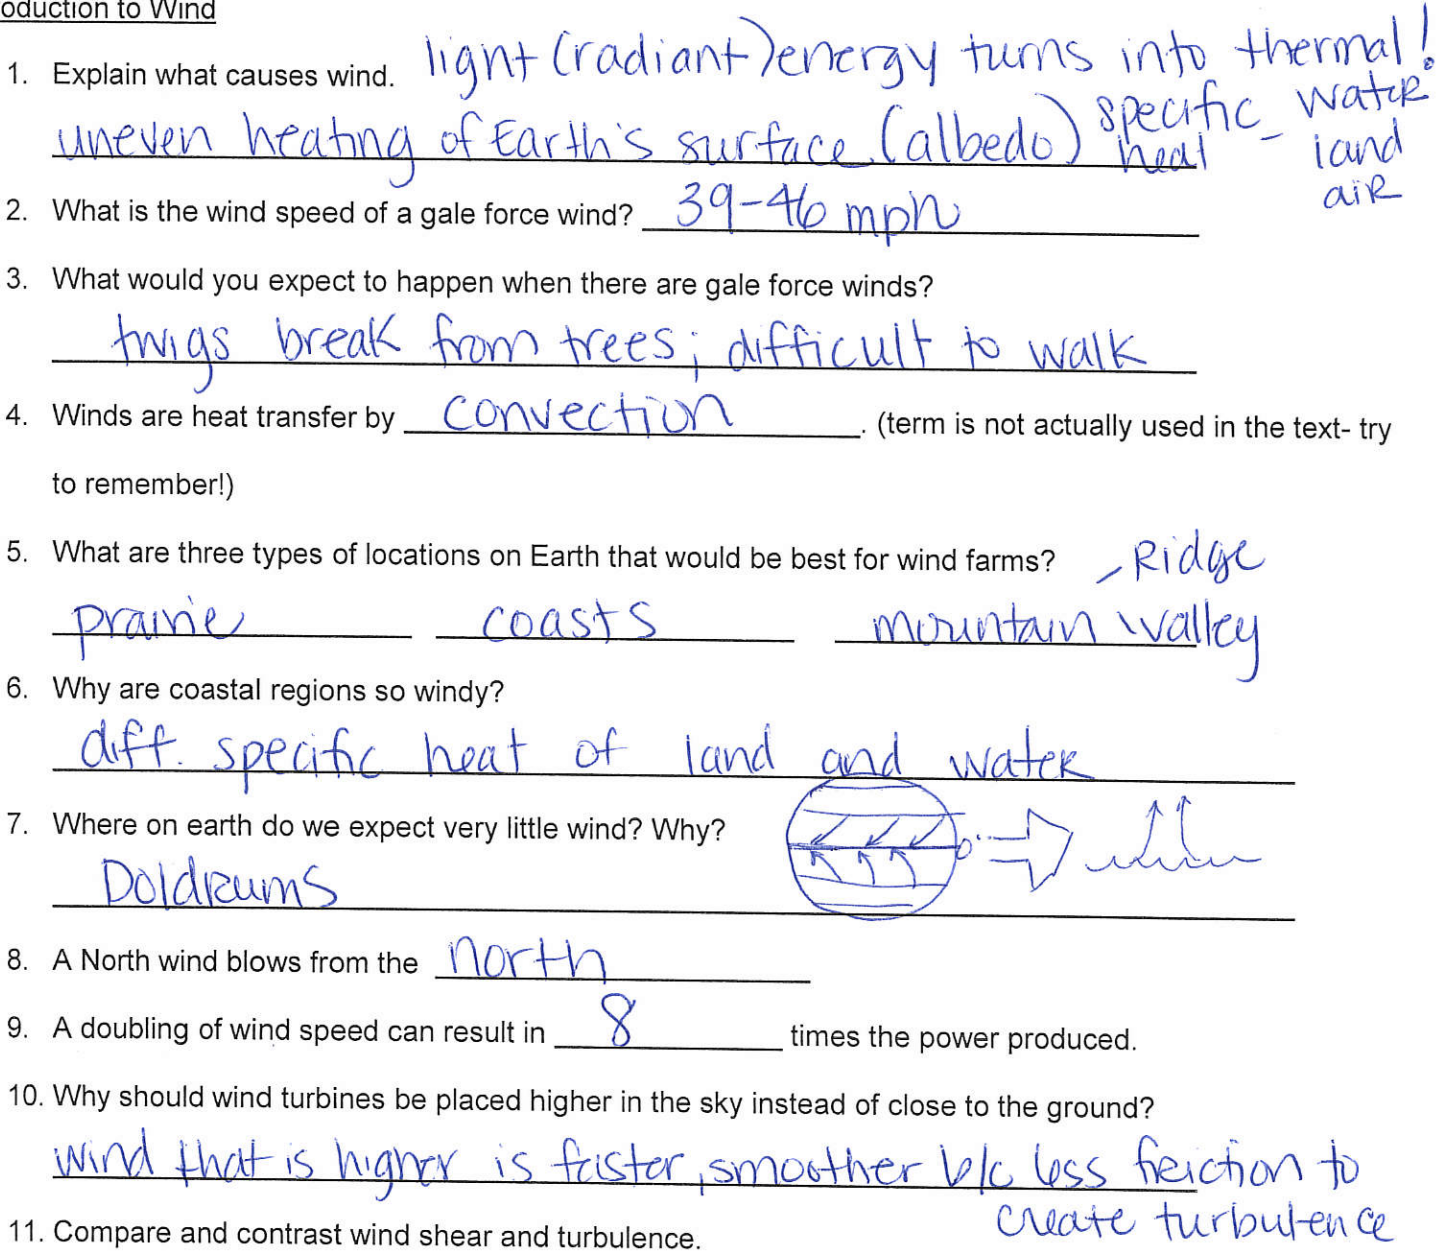 oduction to Wind
1. Explain what causes wind. light (radiant) energy turns into thermal!
uneven heating of Earth's surface (albedo) specific heat - water land air
2. What is the wind speed of a gale force wind? 39-46 mph
3. What would you expect to happen when there are gale force winds?
twigs break from trees; difficult to walk
4. Winds are heat transfer by convection. (term is not actually used in the text- try
to remember!)
5. What are three types of locations on Earth that would be best for wind farms?
Ridge
prairie coasts mountain valley
6. Why are coastal regions so windy?
diff. specific heat of land and water
7. Where on earth do we expect very little wind? Why?
Doldrums
8. A North wind blows from the north
9. A doubling of wind speed can result in 8 times the power produced.
10. Why should wind turbines be placed higher in the sky instead of close to the ground?
wind that is higher is faster, smoother b/c less friction to
create turbulence
11. Compare and contrast wind shear and turbulence.